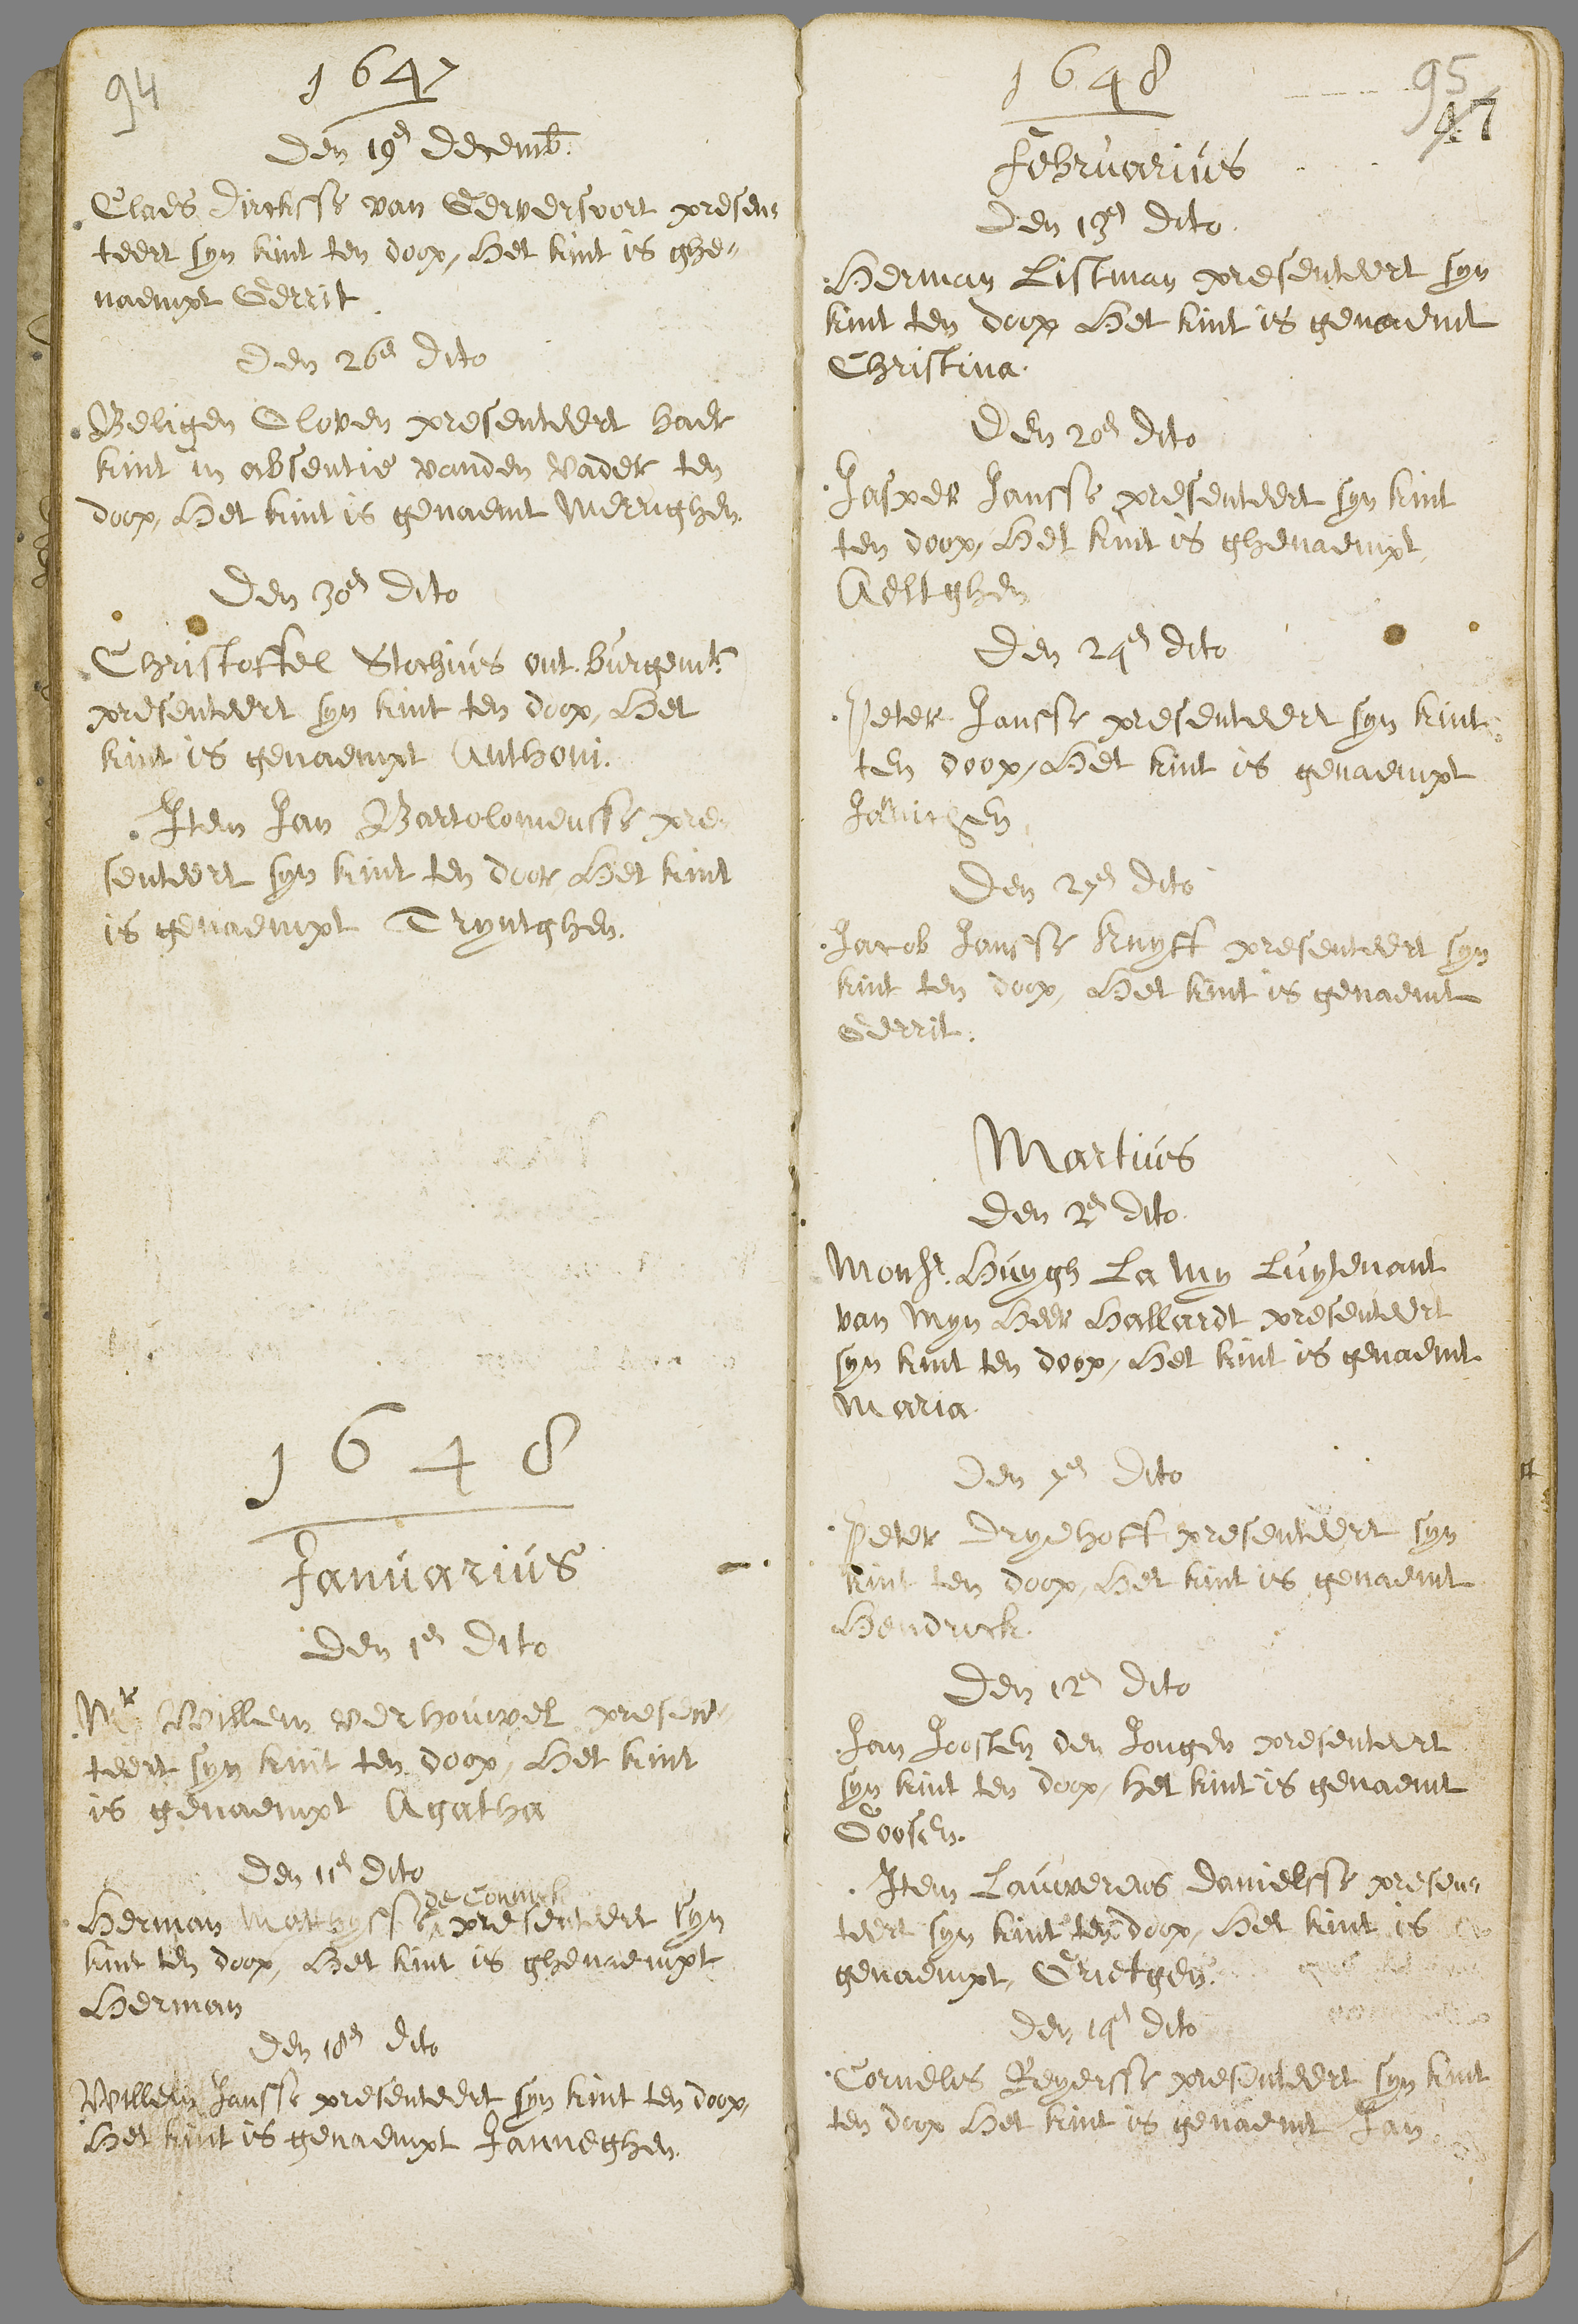 94
1647
Den 19en decemb.
Claes Dircksse van Gerversvort presen-
teert syn kint ten doop, Het kint is ghe-
naempt Gerrit.
Den 26en dito
Beligen Oloven presenteert haer
kint in absentie vanden vader ten
doop, Het kint is genaemt Merrighen.
Den 30en dito
Christoffel Stochius out. burgemr
presenteert syn kint ten doop, Het
kint is genaempt Anthoni.
Item Jan Bartolomeusse pre
senteert syn kint ten doop Het kint
is genaempt Tryntghen.
1648
Januarius
Den 1en dito
Mr Willem verhouwel presen-
teert syn kint ten doop, Het kint
is genaempt Agatha
Den 11en dito
de Coninck
Herman Matthysse presenteert syn
kint ten doop, Het kint is ghenaempt
Herman
Den 18en dito
Willem Jansse presenteert syn kint ten doop,
Het kint is genaempt Janneghen.
95
47
1648
Februarius
Den 13en dito.
Herman Listman presenteert syn
kint ten doop Het kint is genaemt
Christina.
Den 20en dito
Jasper Jansse presenteert syn kint
ten doop, Het kint is ghenaempt,
Aeltghen
Den 24en dito
Peter Jansse presenteert syn kint
ten doop, Het kint is genaempt
Den 27en dito
Jacob Jansse Kuyff presenteert syn
kint ten doop, Het kint is genaemt
Gerrit.
Martius
Den 2en dito.
Monsr. Huygh La My Luytenant
van Myn Heer Hallardt presenteert
syn kint ten doop, Het kint is genaemt
Maria
Den 7en dito
Peter Dryehoff presenteert syn
kint ten doop, Het kint is genaemt
Hendrick.
Den 12en dito
Jan Joosten den Jongen presenteert
syn kint ten doop, het kint is genaemt
Goosen.
Item Lauwerens Danielsse presen-
teert syn kint ten doop, Het kint is
genaempt, Grietgen.
Den 14en dito
Cornelis Reyersse presenteert syn kint
ten doop Het kint is genaemt Jan